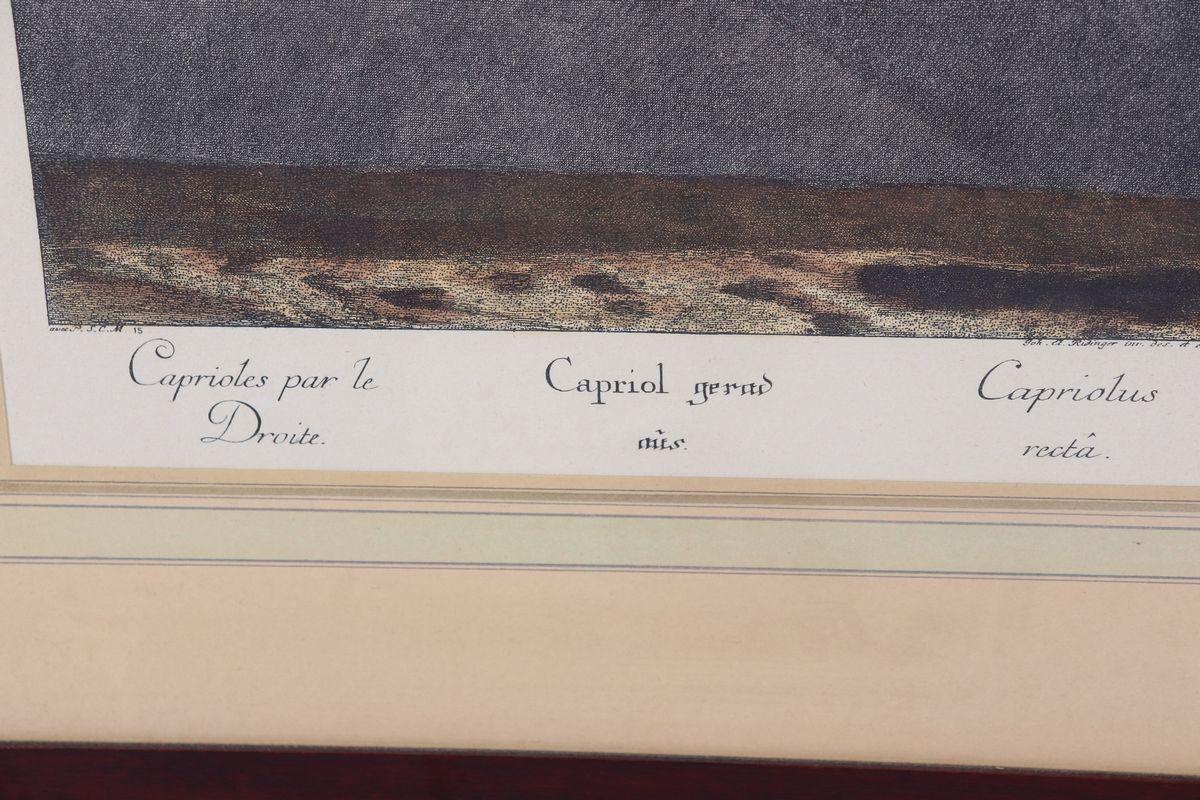 avec P. S. C. M 15
Joh. El. Ridinger inv. des. et
Caprioles par le
Droite.
Capriol gerad
aũs.
Capriolus
rectâ.